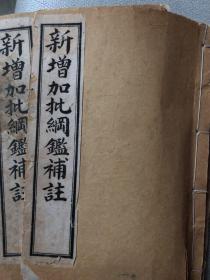 新增加批綱鑑補註
新增加批綱鑑補註